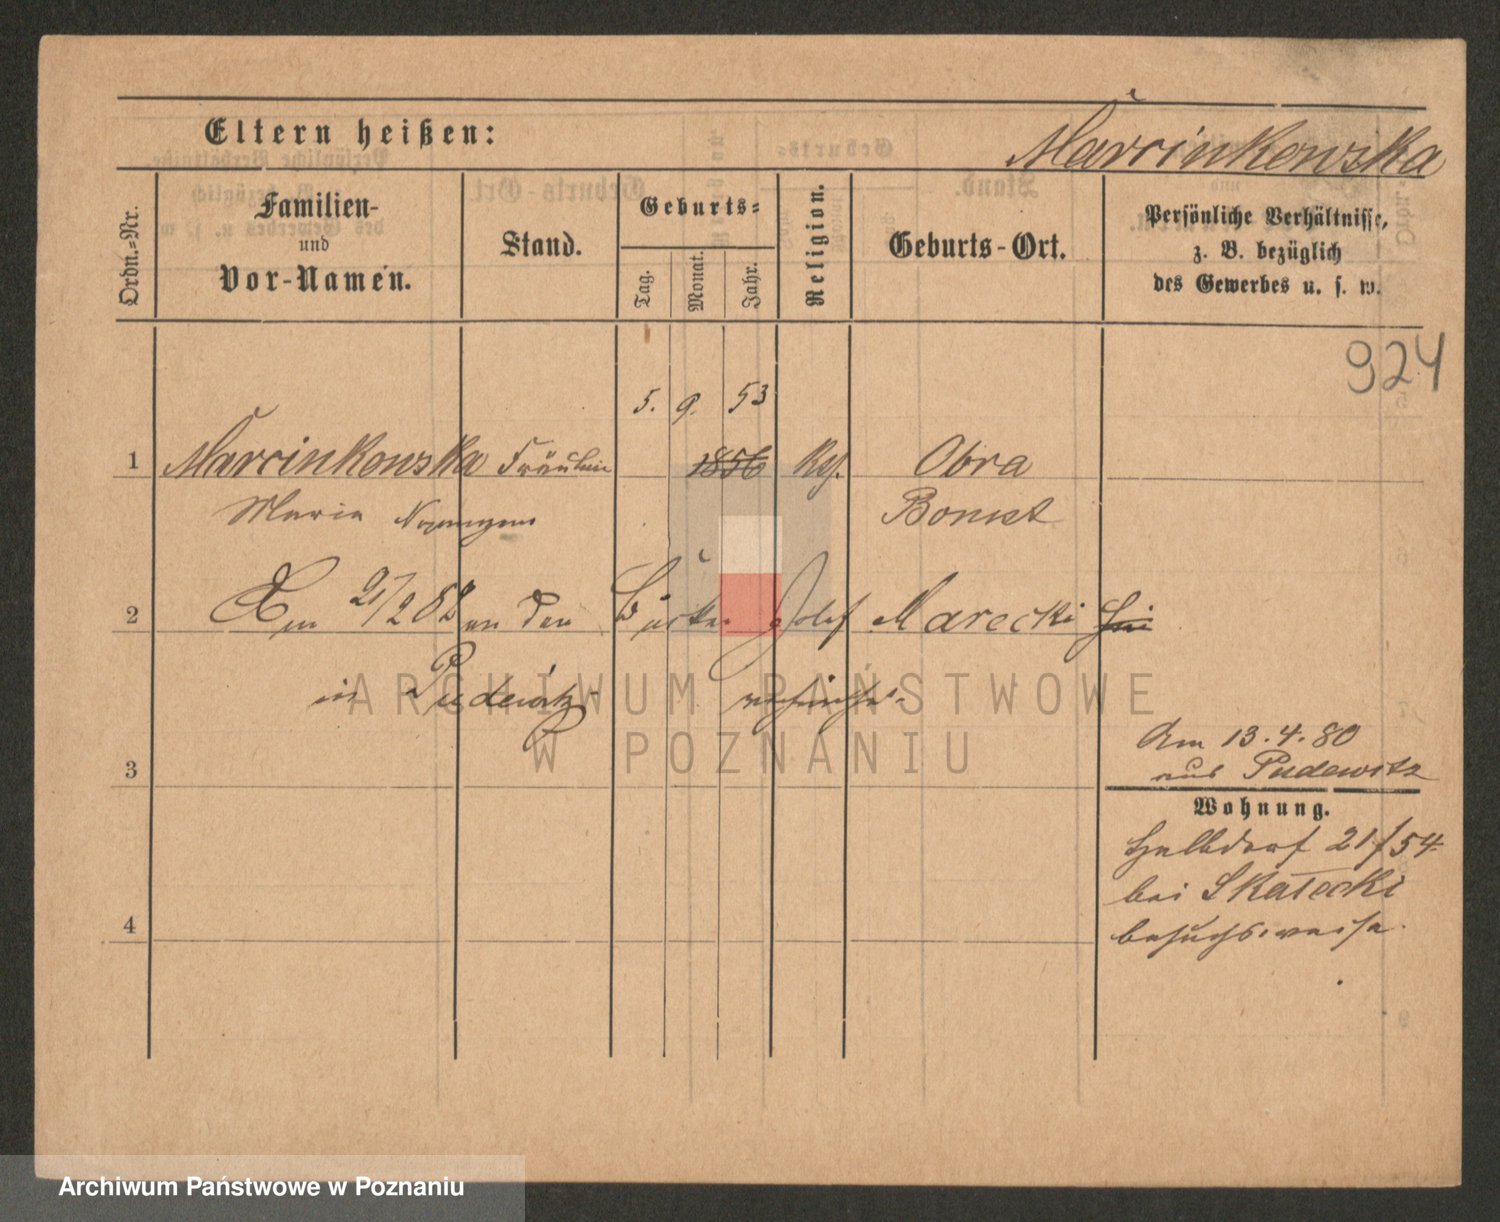 Eltern heißen:
Marcinkowska
Ordn.=Nr.
Familien-
und
Vor-Namen.
Stand.
Geburts=
Tag.
Monat.
Jahr.
Religion.
Geburts-Ort.
Persönliche Verhältnisse,
z. B. bezüglich
des Gewerbes u. s. w.
924
5. 9. 53
1 Marcinkowska Fräulein 1856 Obra
Maria Bomst
2 Am 21/2 82 an den Josef Marecki
in Pudewitz
ARCHIWUM PAŃSTWOWE
W POZNANIU
Am 13.4.80
3 aus Pudewitz
Wohnung.
Halbdorf 21/54
bei Skałecki
4 besuchsweise.
Archiwum Państwowe w Poznaniu